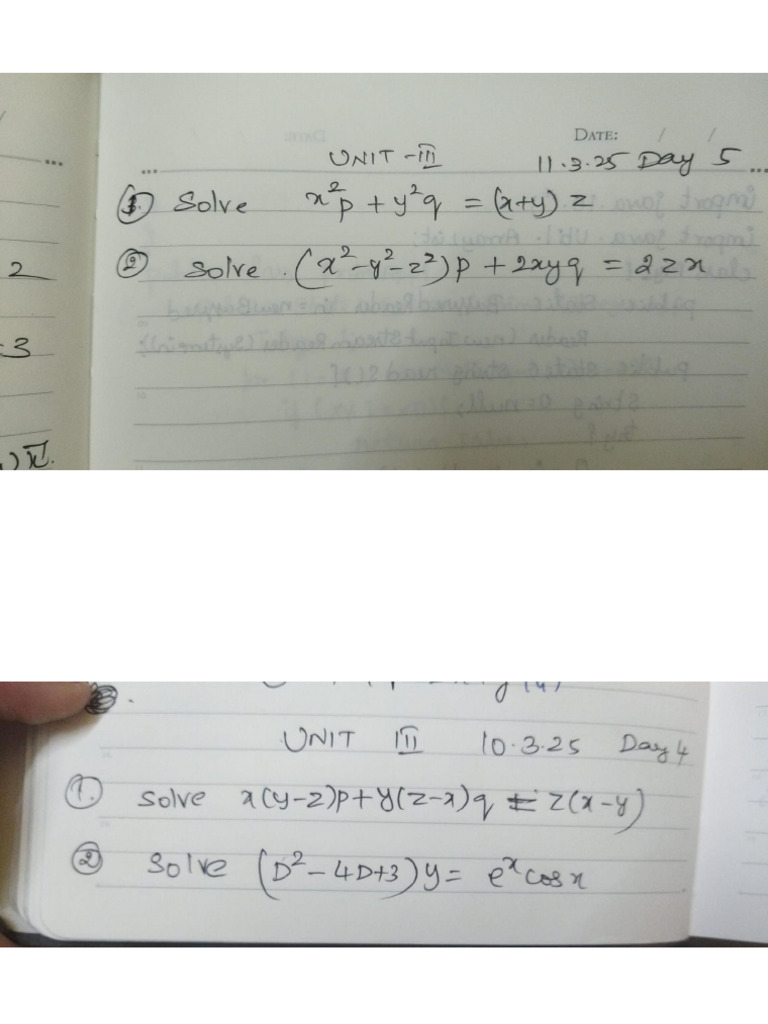 DATE: / /
UNIT - III 11.3.25 Day 5
① Solve x²p + y²q = (x+y) z
② Solve. (x²-y²-z²)p + 2xyq = 2zx
2
3
UNIT III 10.3.25 Day 4
①. Solve x(y-z)p+y(z-x)q = z(x-y)
② Solve (D²-4D+3)y = eˣcosx